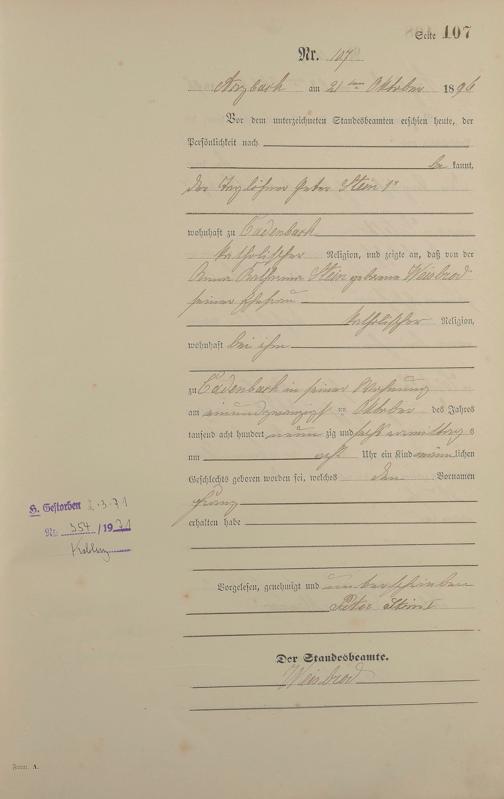 Seite 107
Nr. 107
Arzbach am 21ten Oktober 1896
Vor dem unterzeichneten Standesbeamten erschien heute, der
Persönlichkeit nach
be kannt,
der Taglöhner Peter Stein 1r
wohnhaft zu Cadenbach
katholischer Religion, und zeigte an, daß von der
Anna Katharina Stein geborene Weisbrod
seiner Ehefrau
katholischer Religion,
wohnhaft bei ihm
zu Cadenbach in seiner Wohnung
am einundzwanzigsten Oktober des Jahres
tausend acht hundert neunzig und sechs vormittags
um acht Uhr ein Kind männlichen
Geschlechts geboren worden sei, welches den Vornamen
Franz
erhalten habe
H. Gestorben 2.3.71
Nr. 354/1971
Koblenz
Vorgelesen, genehmigt und unterschrieben
Peter Stein 1
Der Standesbeamte.
Weisbrod
Form. A.